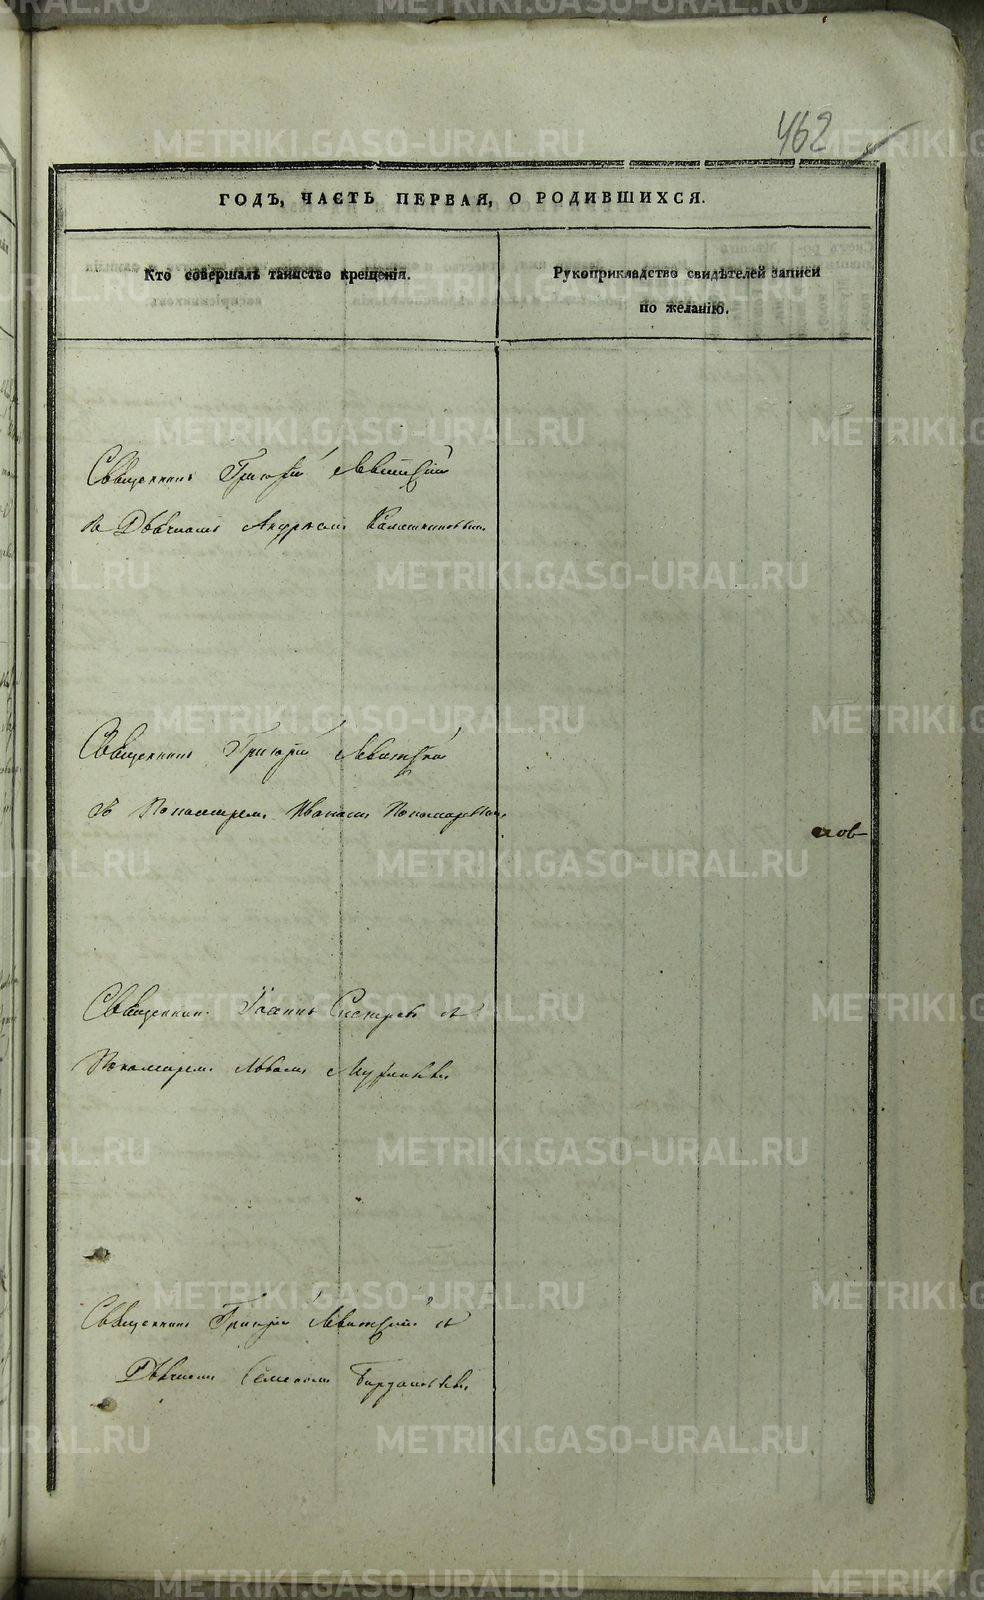 462
ГОДЪ, ЧАСТЬ ПЕРВАЯ, О РОДИВШИХСЯ.
Кто совершалъ таинство крещенія.
Рукоприкладство свидѣтелей записи
по желанію.
Священникъ Григорій Левитскій
съ Дьячкомъ Андреемъ
Священникъ Григорій Левитскій
съ Пономаремъ Иваномъ Пономаревымъ
нов
Священникъ Іоаннъ съ
Пономаремъ Львомъ
Священникъ Григорій Левитскій съ
Дьячкомъ Семеномъ
METRIKI.GASO-URAL.RU